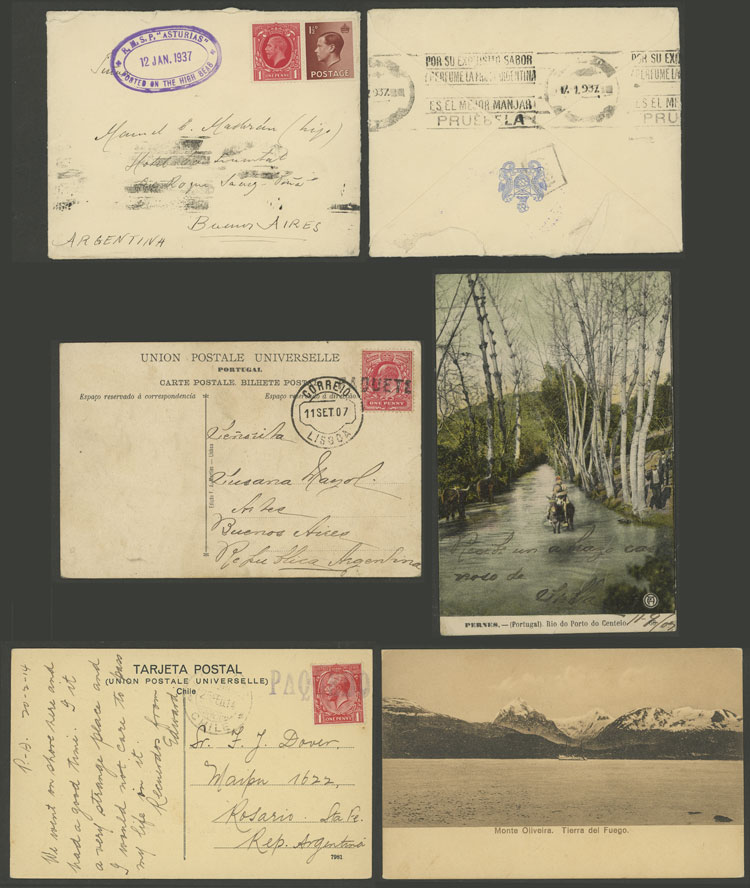 R. M. S. P. "ASTURIAS"
12 JAN. 1937
POSTED ON THE HIGH SEAS
1 1
1½ POSTAGE
Manuel C. (hijo)
Hotel
Roque Saenz Peña
Buenos AIRES
ARGENTINA
POR SU EXQUISITO SABOR
POR SU EXQ
Y PERFUME LA ARGENTINA
PERFUME LA
1.937.
1.937.
ES EL MEJOR MANJAR
ES EL M
PRUEBELA
PRU
UNION POSTALE UNIVERSELLE
PORTUGAL
CARTE POSTALE. BILHETE POST
Espaço reservado á correspondencia
Espaço reservado á direcção
PAQUETE
ONE PENNY
CORREIO
11 SET 07
LISBOA
Señorita
Susana
Artes
Buenos Aires
Republica Argentina
PERNES. — (Portugal). Rio do Porto do Centeio.
TARJETA POSTAL
(UNION POSTALE UNIVERSELLE)
Chile
PAQ
1 1
CHILE
P-A. 20-2-14
We went on shore here and
had a good time. I it
a very strange place and
I would not care to pass
my life on it.
Recuerdos from
Edward
Sr. F. J. Dover.
Maipu 1622,
Rosario. Sta Fe.
Rep. Argentina
7981
Monte Oliveira. Tierra del Fuego.